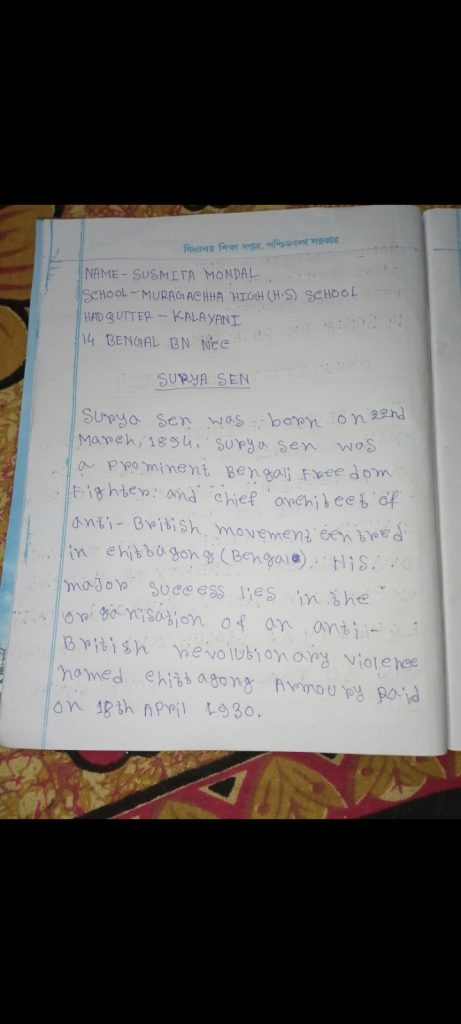 বিদ্যালয় শিক্ষা দপ্তর, পশ্চিমবঙ্গ সরকার
NAME - SUSMITA MONDAL
SCHOOL - MURAGACHHA HIGH (H.S) SCHOOL
HADQUTTER - KALAYANI
14 BENGAL BN Ncc
SURYA SEN
Surya Sen was born on 22nd
March, 1894. Surya sen was
a prominent Bengali Freedom
Fighter and chief architect of
anti-British movement centred
in chittagong (Bengal). His
major success lies in the
organisation of an anti-
British revolutionary violence
named chittagong Armoury Raid
on 18th April 1930.